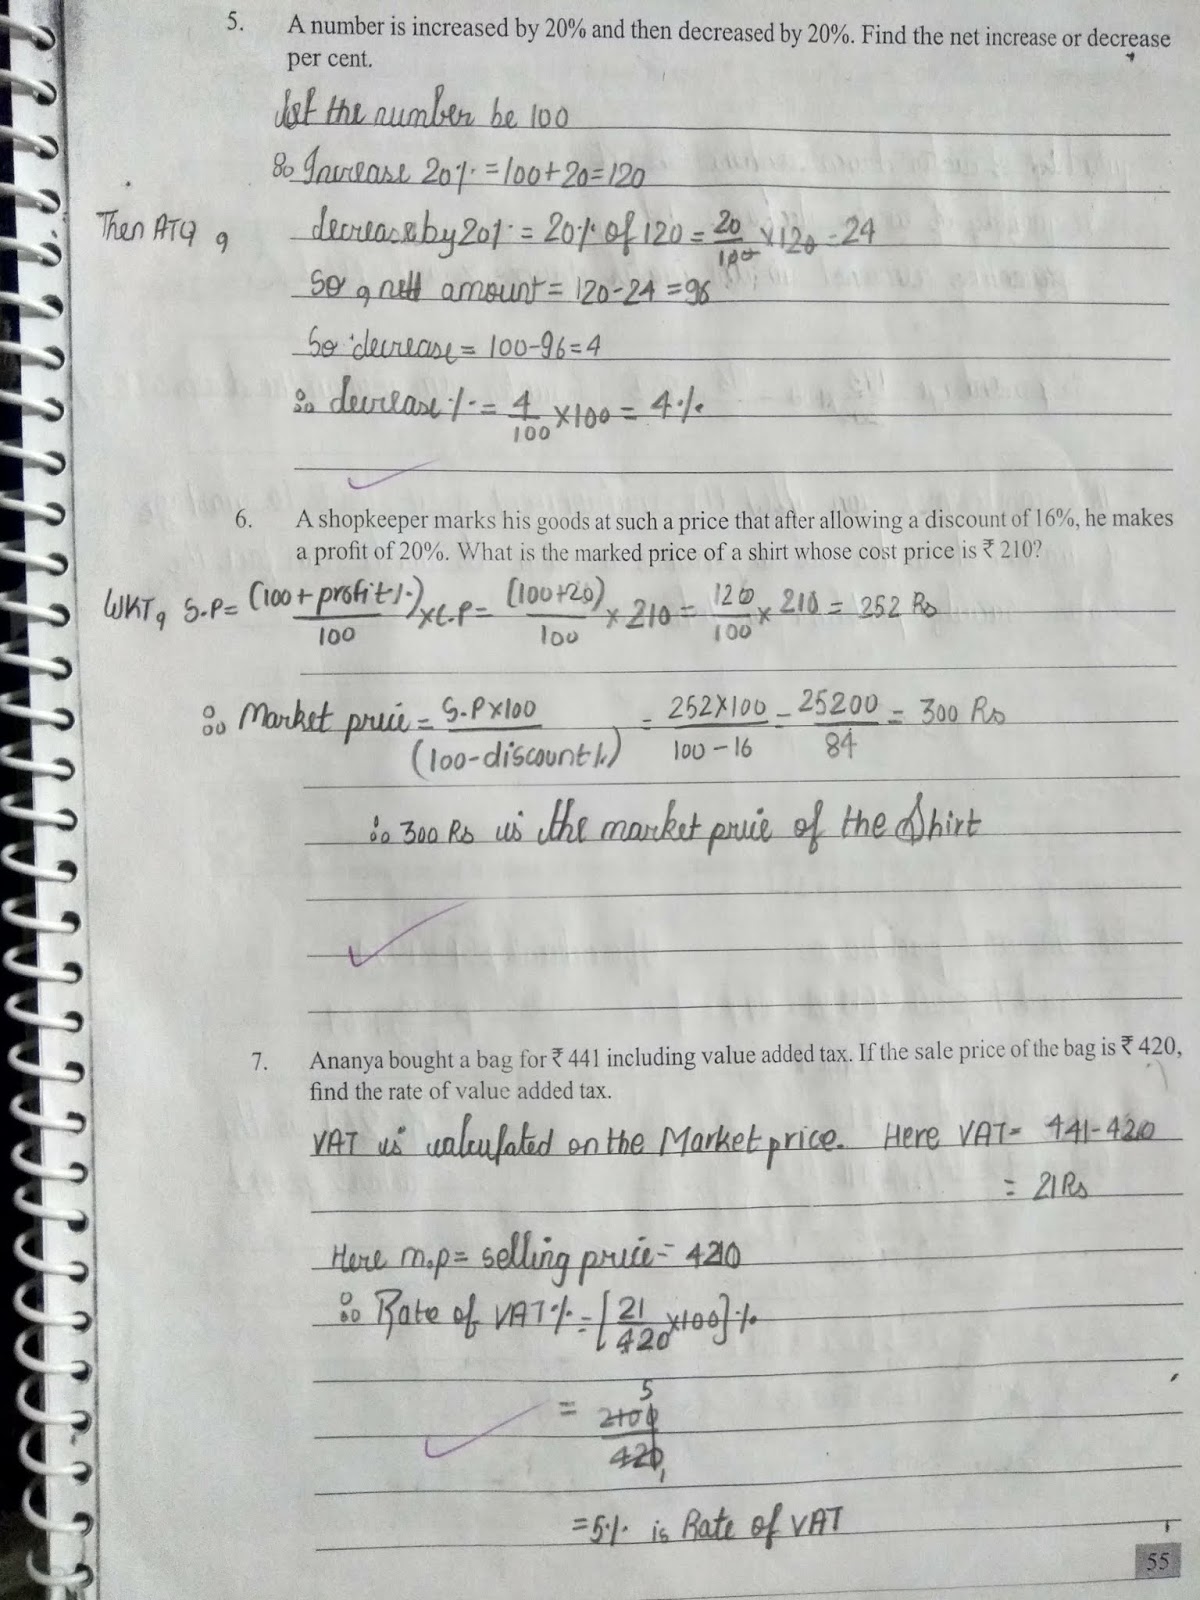 5. A number is increased by 20% and then decreased by 20%. Find the net increase or decrease
per cent.
let the number be 100
∴ Increase 20% = 100+20=120
Then ATQ, decrease by 20% = 20% of 120 = 20/100 × 120 = 24
So, nett amount = 120-24 = 96
So decrease = 100-96=4
∴ decrease % = 4/100 ×100 = 4%
6. A shopkeeper marks his goods at such a price that after allowing a discount of 16%, he makes
a profit of 20%. What is the marked price of a shirt whose cost price is ₹ 210?
WKT, S.P= (100+profit%)/100 ×C.P= (100+20)/100 × 210 = 120/100 × 210 = 252 Rs
∴ Market price = S.P×100/(100-discount%) = 252×100/100-16 = 25200/84 = 300 Rs
∴ 300 Rs is the market price of the Shirt
7. Ananya bought a bag for ₹ 441 including value added tax. If the sale price of the bag is ₹ 420,
find the rate of value added tax.
VAT is calculated on the Market price. Here VAT= 441-420
= 21 Rs
Here m.p= selling price= 420
∴ Rate of VAT% = [21/420 ×100]%
5
= 2100/420
1
=5% is Rate of VAT
55